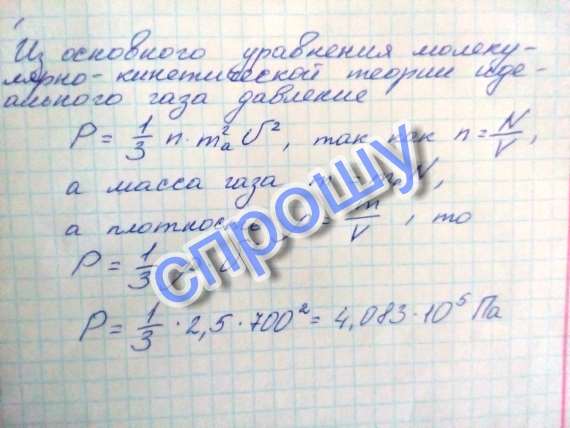 Из основного уравнения молеку-
лярно-кинетической теории иде-
ального газа давление
P = 1/3 n · m_a^2 υ^2, так как n = N/V,
а масса газа m = N,
а плотность = m/V, то
P = 1/3
P = 1/3 · 2,5 · 700^2 = 4,083 · 10^5 Па
спрошу